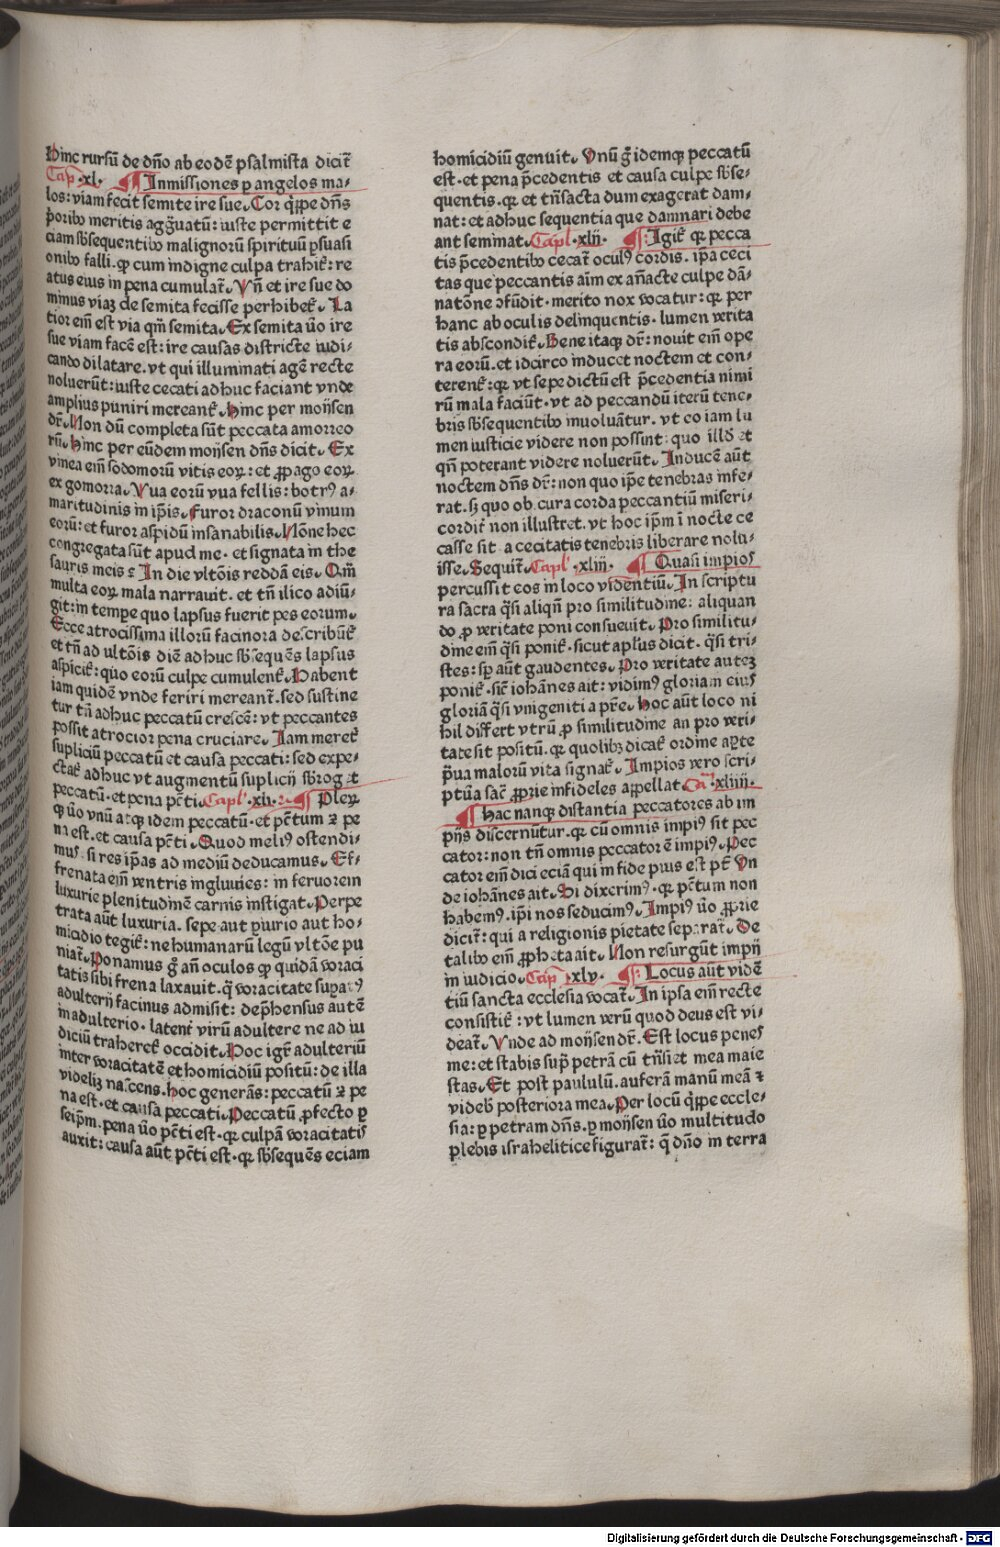 Hinc rursũ de dño ab eodẽ psalmista dicit᷑
Cap .xl. ¶ Inmissiones ꝑ angelos ma⸗
los: viam fecit semite ire sue. Cor q̃ppe dñs
p̃orib⁹ meritis agg̃uatũ: iuste permittit e
ciam sb̃sequentib⁹ malignorũ spirituũ ꝑsuasi
onib⁹ falli. qꝫ cum indigne culpa trahit᷑: re
atus eius in pena cumulat᷑. Vñ et ire sue do
minus viaꝫ de semita fecisse perhibet᷑. La
tior eñi est via q̃m semita. Ex semita ṽo ire
sue viam face᷑ est: ire causas districte iudi⸗
cando dilatare. vt qui illuminati age᷑ recte
noluerũt: iuste cecati adhuc faciant vnde
amplius puniri mereant᷑. Hinc per moẏsen
dr̃. Non dũ completa sũt peccata amorreo
rũ. Hinc per eũdem moẏsen dñs dicit. Ex
vinea eñi sodomorũ vitis eoꝝ: et ꝓpago eoꝝ
ex gomorra. Vua eorũ vua fellis: botr⁹ a⸗
maritudinis in ip̃is. Furor draconũ vinum
eorũ: et furor aspidũ insanabilis. Nõne hec
congregata sũt apud me. et signata in the
sauris meis: In die vltõis reddã eis. Qm̃
multa eoꝝ mala narrauit. et tñ ilico adiũ⸗
git: in tempe quo lapsus fuerit pes eorum.
Ecce atrocissima illorũ facinora describũt᷑
et tñ ad ultõis diẽ adhuc sb̃sequẽs lapsus
aspicit᷑: quo eorũ culpe cumulent᷑. Habent
iam quidẽ vnde feriri mereant᷑. sed sustine
tur tñ adhuc peccatũ cresce᷑: vt peccantes
possit atrocior pena cruciare. Iam meret᷑
supliciũ peccatũ et causa peccati: sed expe⸗
ctat᷑ adhuc vt augmentũ suplicij sbroget
peccatũ. et pena pc̃ti. Capl' .xli. ¶ Pleꝝ
qꝫ ṽo vnũ atqꝫ idem peccatũ. et pc̃tum ꝛ pe
na est. et causa pc̃ti. Quod meli⁹ ostendi⸗
mus. si res ip̃as ad mediũ deducamus. Ef⸗
frenata eñi ventris ingluuies: in feruorem
luxurie plenitudinẽ carnis instigat. Perpe
trata aũt luxuria. sepe aut ꝑiurio aut ho⸗
micidio tegit᷑: ne humanarũ legũ vltõe pu
niat᷑. Ponamus g̃ añ oculos qꝫ quidã voraci
tatis sibi frena laxauit. q̃ voracitate supat⁹
adulterij facinus admisit: dep̃hensus autẽ
in adulterio. latent᷑ virũ adultere ne ad iu
diciũ traheret᷑ occidit. Hoc igr̃ adulteriũ
inter voracitatẽ et homicidiũ positũ: de illa
videliꝫ nascens. hoc generãs: peccatũ ꝛ pe
na est. et causa peccati. Peccatũ ꝓfecto ꝑ
seip̃m. pena ṽo pc̃ti est. qꝛ culpã voracitatis
auxit: causa aũt pc̃ti est. qꝛ sb̃sequẽs eciam
homicidiũ genuit. Vnũ g̃ idemqꝫ peccatũ
est. et pena p̃cedentis et causa culpe sb̃se⸗
quentis. qꝛ et trñsacta dum exagerat dam⸗
nat: et adhuc sequentia que damnari debe
ant seminat. Capl' .xlij. ¶ Igit᷑ qꝛ pecca
tis p̃cedentib⁹ cecat᷑ ocul⁹ cordis. ip̃a ceci
tas que peccantis aĩm ex añacte culpe dã⸗
natõne ↄfũdit. merito nox vocatur: qꝛ per
hanc ab oculis delinquentis. lumen verita
tis abscondit᷑. Bene itaqꝫ dr̃: nouit eñi ope
ra eorũ. et idcirco inducet noctem et con⸗
terent᷑: qꝛ vt sepe dictũ est p̃cedentia nimi
rũ mala faciũt. vt ad peccandũ iterũ tene⸗
bris sb̃sequentib⁹ inuoluãtur. vt eo iam lu
men iusticie videre non possint: quo illd̃ et
qñ poterant videre noluerũt. Induce᷑ aũt
noctem dñs dr̃: non quo ip̃e tenebras infe⸗
rat. sꝫ quo ob cura corda peccantiũ miseri⸗
cordit᷑ non illustret. vt hoc ip̃m ĩ nocte ce
casse sit a cecitatis tenebris liberare nolu⸗
isse. Sequit᷑. Capl' .xliij. ¶ Quasi impios
percussit eos in loco videntiũ. In scriptu
ra sacra q̃si aliqñ pro similitudine: aliquan
do ꝓ veritate poni consueuit. Pro similitu⸗
dine eñi q̃si ponit᷑. sicut apl̃us dicit. q̃si tri⸗
stes: sp̃ aũt gaudentes. Pro veritate auteꝫ
ponit᷑. sic̃ iohãnes ait: vidim⁹ gloriam eius
gloriã q̃si vnigeniti a pr̃e. Hoc aũt loco ni
hil differt vtrũ ꝓ similitudine an pro veri⸗
tate sit positũ. qꝛ quolibꝫ dicat᷑ ordine aꝑte
p̃ua malorũ vita signat᷑. Impios vero scri⸗
ptũa sac̃ ꝓprie infideles appellat Ca᷑ .xliiij.
¶ Hac nanqꝫ distantia peccatores ab im
pijs discernũtur. qꝛ cũ omnis impi⁹ sit pec
cator: non tñ omnis peccator ẽ impi⁹. Pec
cator eñi dici eciã qui in fide pius est pt̃. Vn
de iohãnes ait. Si dixerim⁹. qꝛ pc̃tum non
habem⁹. ip̃i nos seducim⁹. Impi⁹ ṽo ꝓprie
dicit᷑: qui a religionis pietate separat᷑. De
talib⁹ eñi ꝓpheta ait. Non resurgũt impij
in iudicio. Cap .xlv. ¶ Locus aũt vidẽ
tiũ sancta ecclesia vocat᷑. In ipsa eñi recte
consistit᷑: vt lumen verũ quod deus est vi⸗
deat᷑. Vnde ad moẏsen dr̃. Est locus penes
me: et stabis sup̃ petrã cũ trñsiet mea maie
stas. Et post paululũ. auferã manũ meã ꝛ
videb̃ posteriora mea. Per locũ q̃ppe eccle⸗
sia: ꝑ petram dñs. ꝑ moẏsen ṽo multitudo
plebis israhelitice figurat᷑: q̃ dño in terra
Digitalisierung gefördert durch die Deutsche Forschungsgemeinschaft - DFG